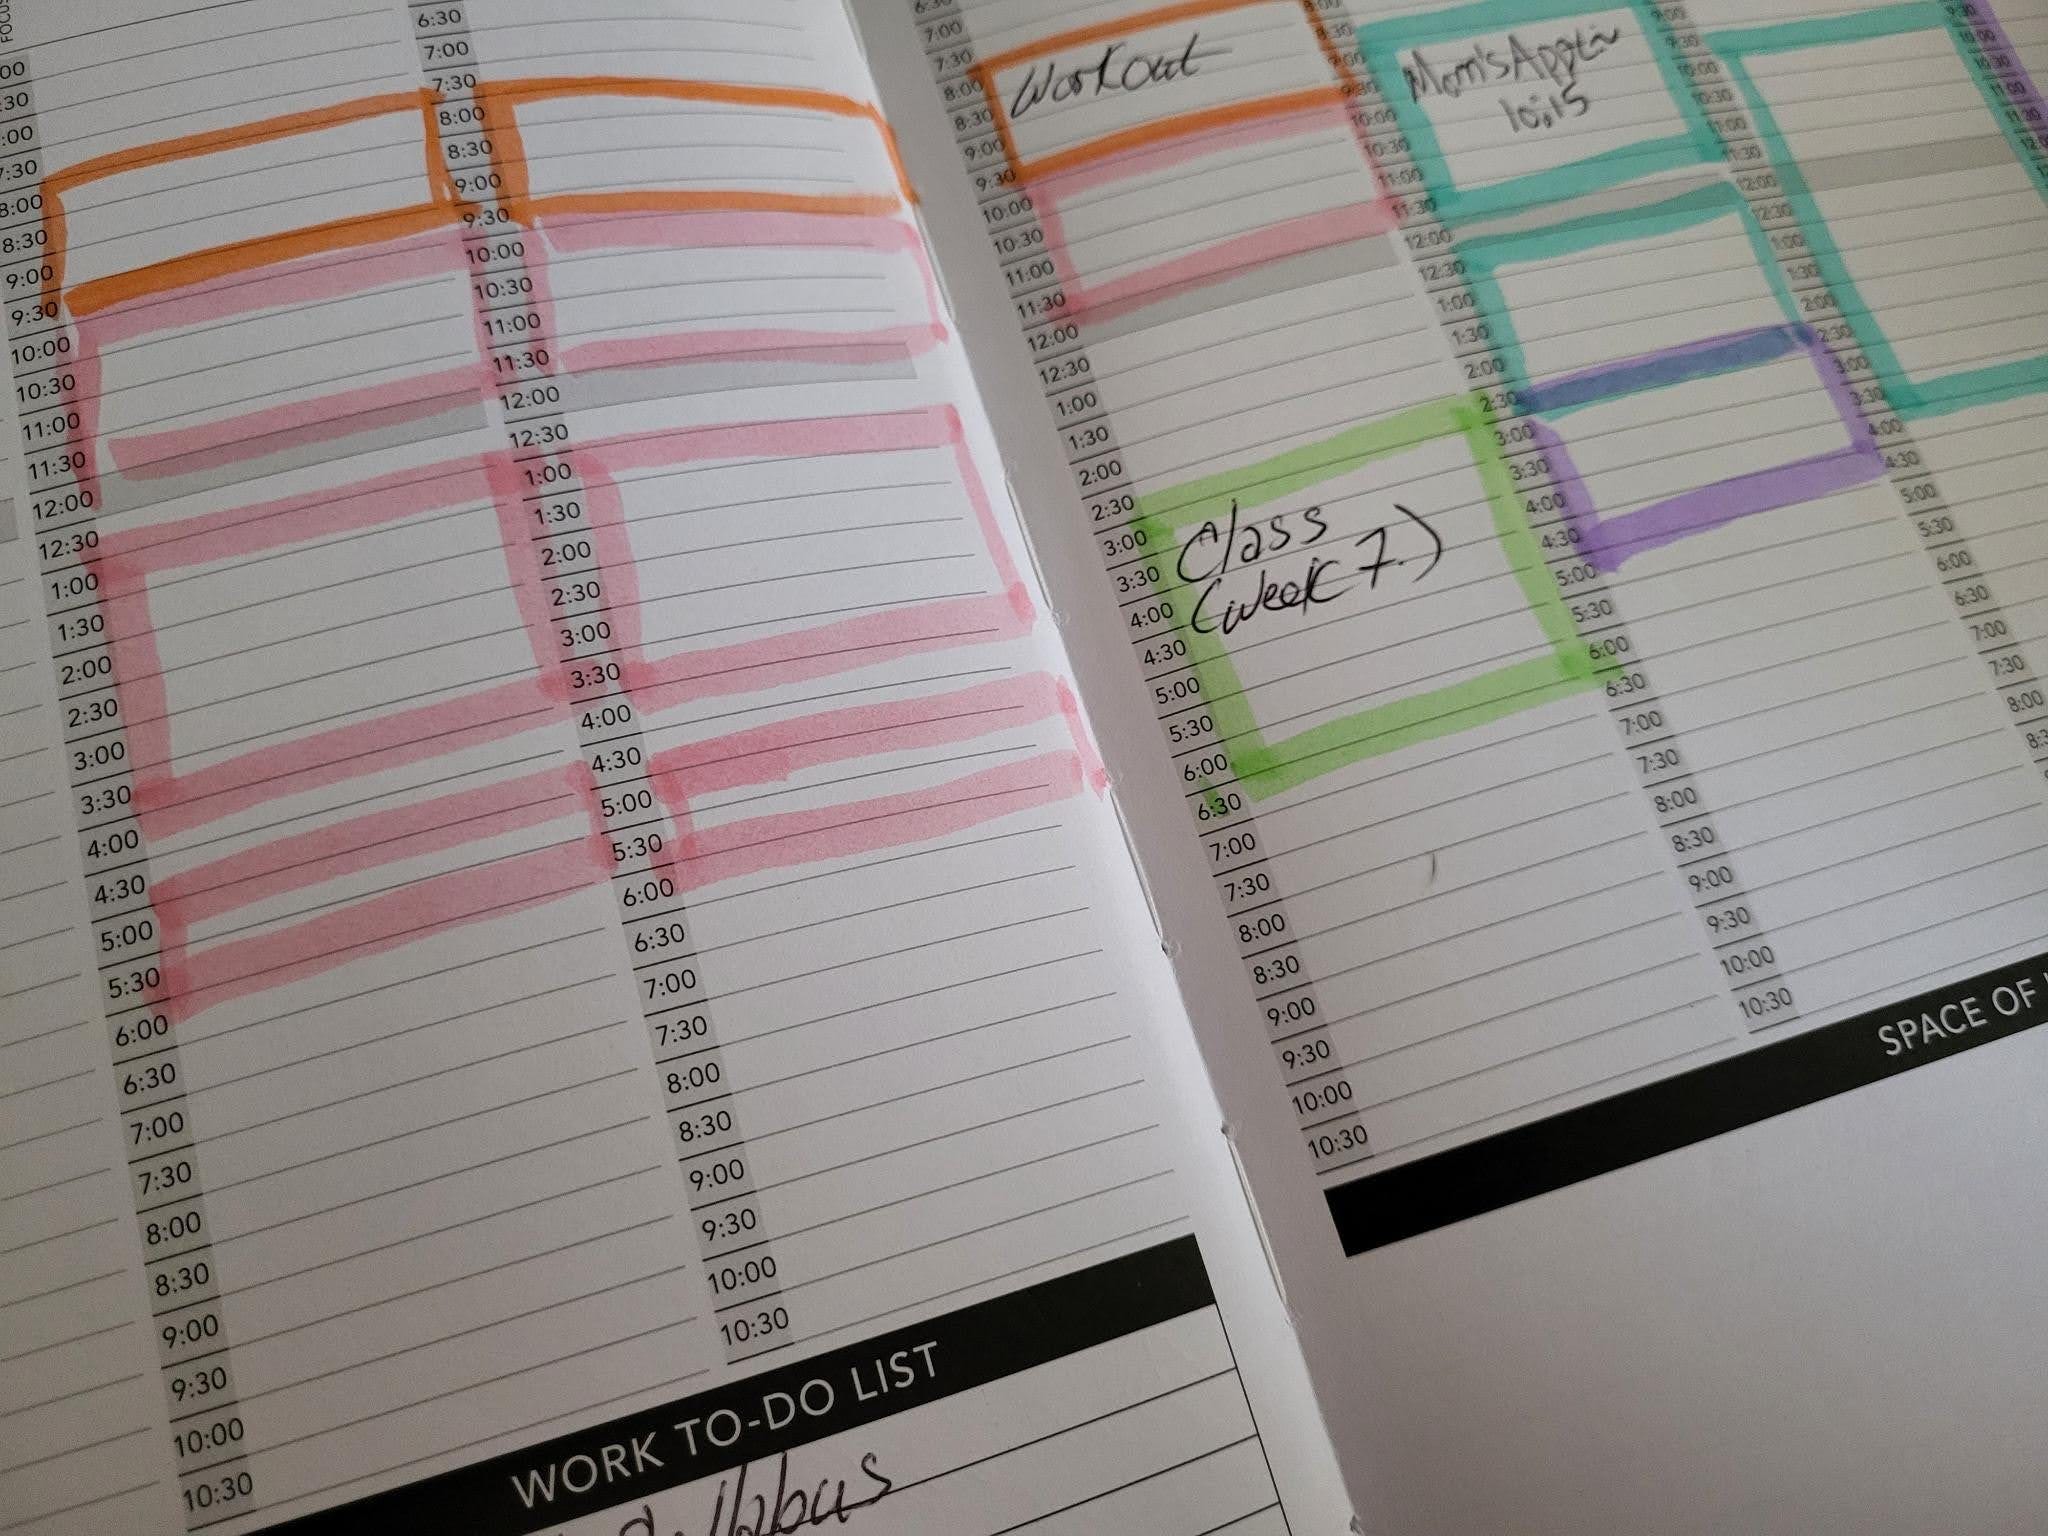 7:30
8:00
8:30
9:00
9:30
10:00
10:30
11:00
11:30
12:00
12:30
1:00
1:30
2:00
2:30
3:00
3:30
4:00
4:30
5:00
5:30
6:00
6:30
7:00
7:30
8:00
8:30
9:00
9:30
10:00
10:30
6:30
7:00
7:30
8:00
8:30
9:00
9:30
10:00
10:30
11:00
11:30
12:00
12:30
1:00
1:30
2:00
2:30
3:00
3:30
4:00
4:30
5:00
5:30
6:00
6:30
7:00
7:30
8:00
8:30
9:00
9:30
10:00
10:30
WORK TO-DO LIST
6:30
7:00
7:30
8:00
8:30
9:00
9:30
10:00
10:30
11:00
11:30
12:00
12:30
1:00
1:30
2:00
2:30
3:00
3:30
4:00
4:30
5:00
5:30
6:00
6:30
7:00
7:30
8:00
8:30
9:00
9:30
10:00
10:30
Workout
Class
(week 7.)
8:00
8:30
9:00
9:30
10:00
10:30
11:00
11:30
12:00
12:30
1:00
1:30
2:00
2:30
3:00
3:30
4:00
4:30
5:00
5:30
6:00
6:30
7:00
7:30
8:00
8:30
9:00
9:30
10:00
10:30
Mom's
10:15
9:00
9:30
10:00
10:30
11:00
11:30
12:00
12:30
1:00
1:30
2:00
2:30
3:00
3:30
4:00
4:30
5:00
5:30
6:00
6:30
7:00
7:30
8:00
9:30
10:00
10:30
11:00
11:30
12:00
SPACE OF